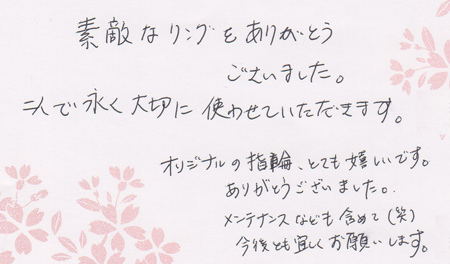 素敵なリングをありがとう
ございました。
二人で永く大切に使わせていただきます。
オリジナルの指輪、とても嬉しいです。
ありがとうございました。
メンテナンスなども含めて(笑)
今後とも宜しくお願いします。